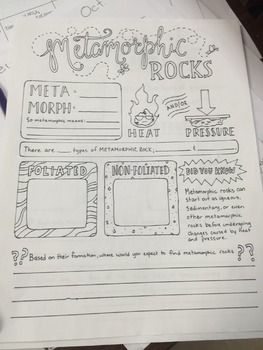 Oct
Metamorphic
ROCKS
META -
MORPH:
So metamorphic means:
HEAT
AND/OR
PRESSURE
There are ___ types of METAMORPHIC Rock, ___ & ___
FOLIATED
NON-FOLIATED
DID YOU KNOW
Metamorphic rocks can
start out as igneous,
sedimentary, or even
other metamorphic
rocks before undergoing
changes caused by heat
and pressure.
?? Based on their formation, where would you expect to find metamorphic rocks ??